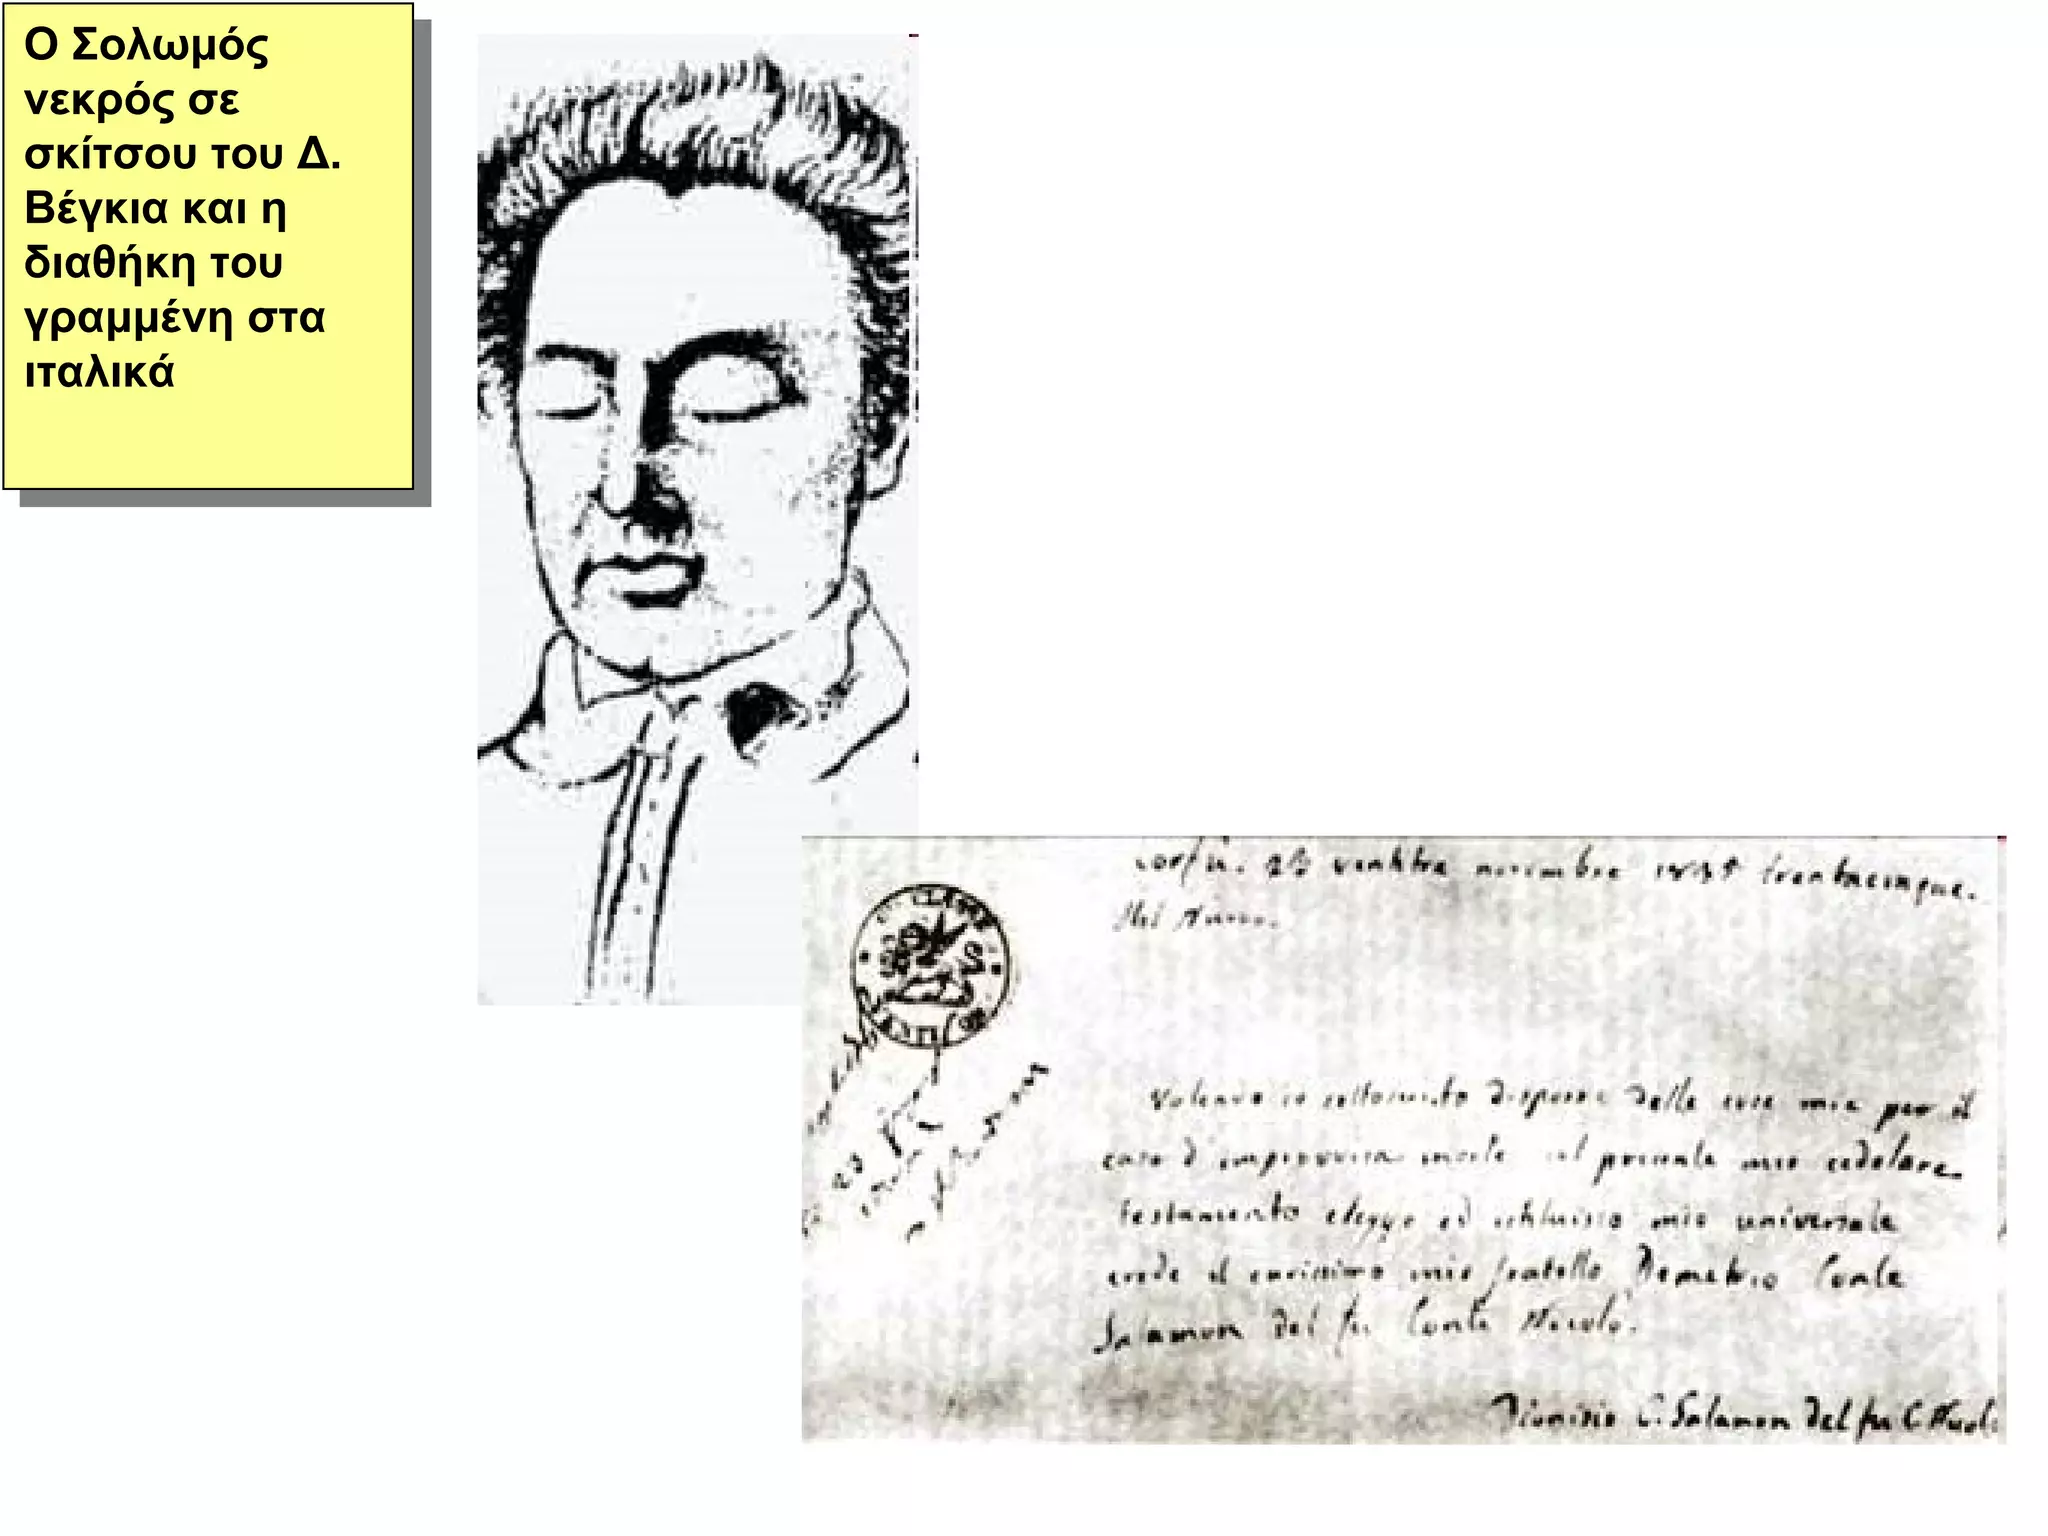 Ο Σολωμός
νεκρός σε
σκίτσου του Δ.
Βέγκια και η
διαθήκη του
γραμμένη στα
ιταλικά
Corfù. 23 ventitre novembre trentacinque.
Volendo io sottoscritto disporre delle cose mie per il
caso d'improvvisa morte col presente mio cedolare
testamento eleggo ed istituisco mio universale
erede il carissimo mio fratello Demetrio Conte
Salamon del fu Conte Nicolò.
Dionisio C. Salamon del fu C. Nicolò